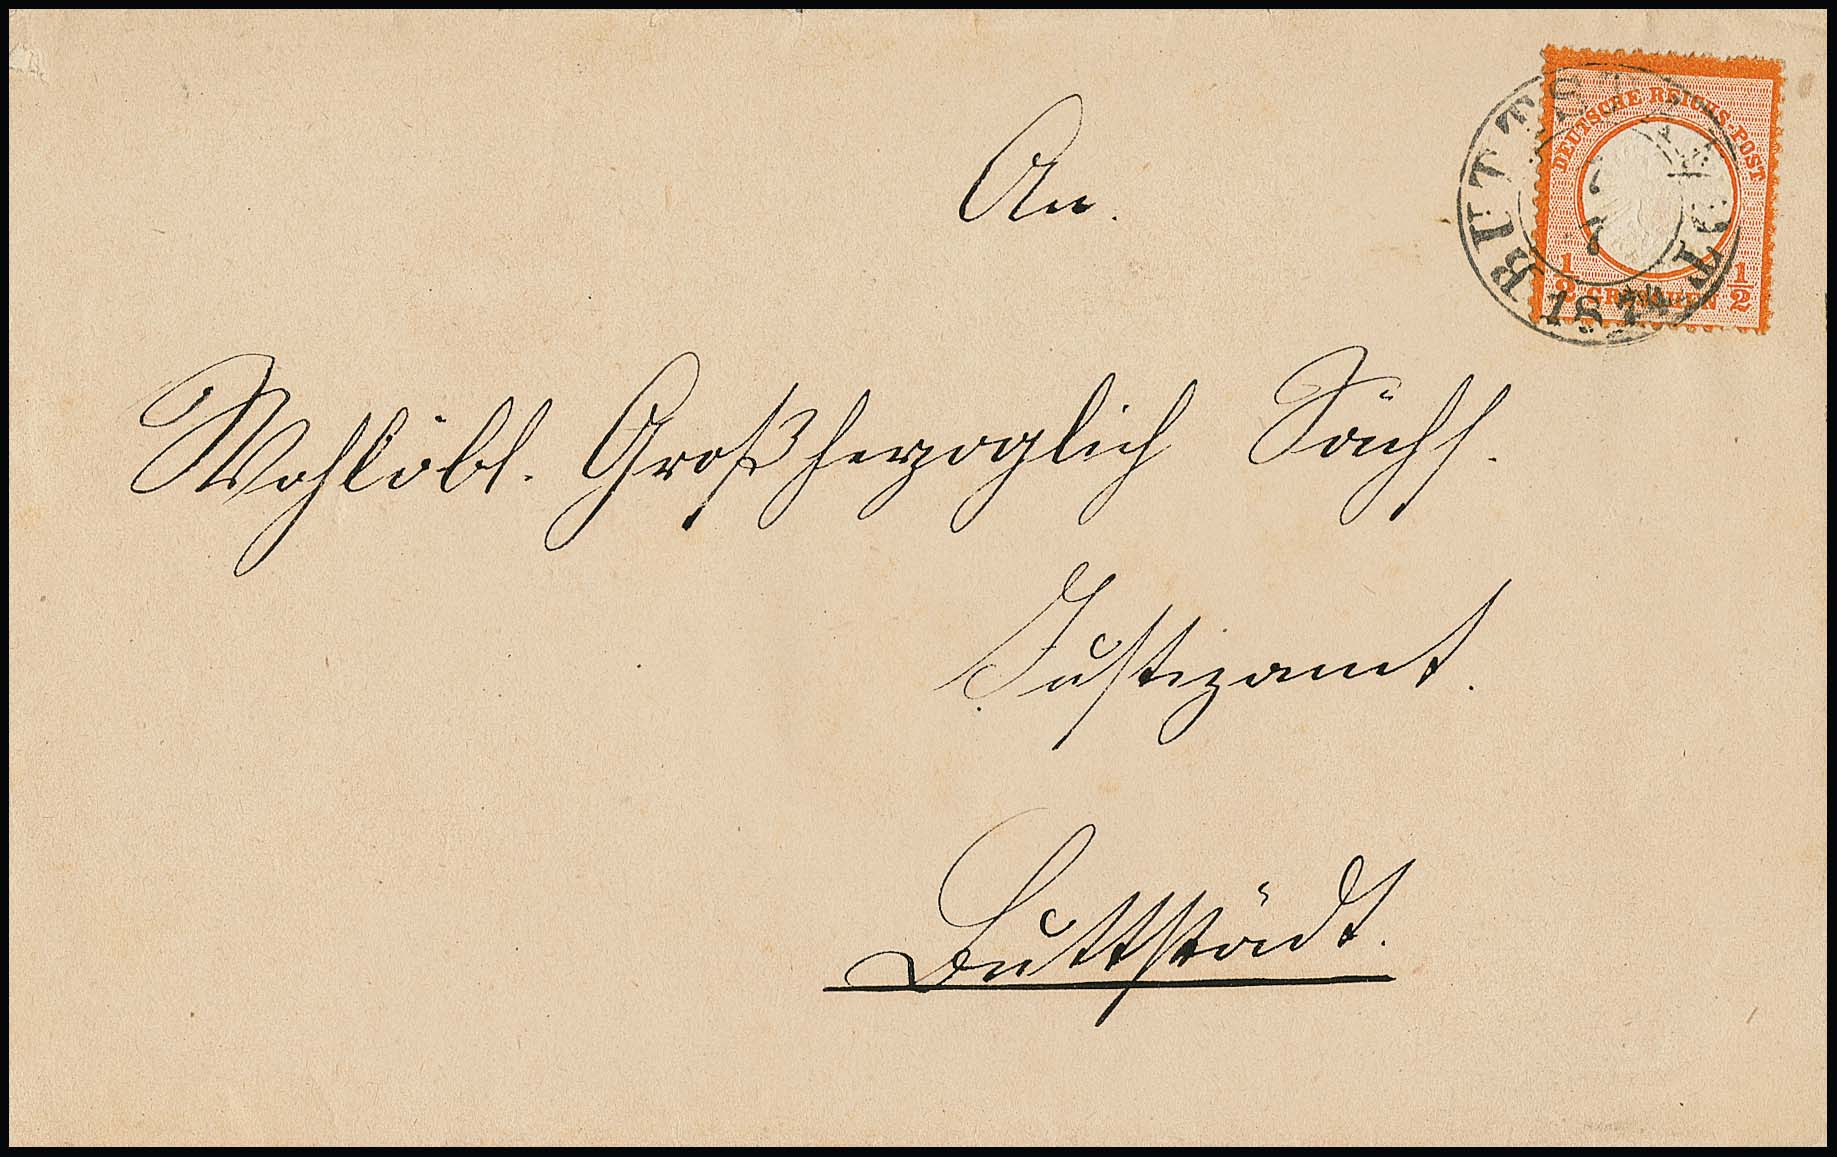 DEUTSCHE REICHS-POST
1/2 GROSCHEN 1/2
7
7
An.
Wohllöbl. Großherzoglich Sächs.
Justizamt.
Buttstädt.